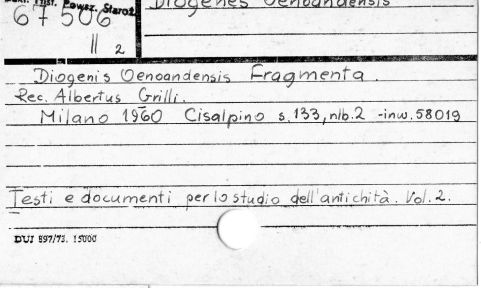 Hist. Powsz. Staroż.
67506
II 2
Diogenes Oenoandensis
Diogenis Oenoandensis Fragmenta.
Rec. Albertus Grilli.
Milano 1960 Cisalpino s.133, nlb.2 -inw.58019
Testi e documenti per lo studio dell'antichità. Vol. 2.
DUJ 897/73. 15000